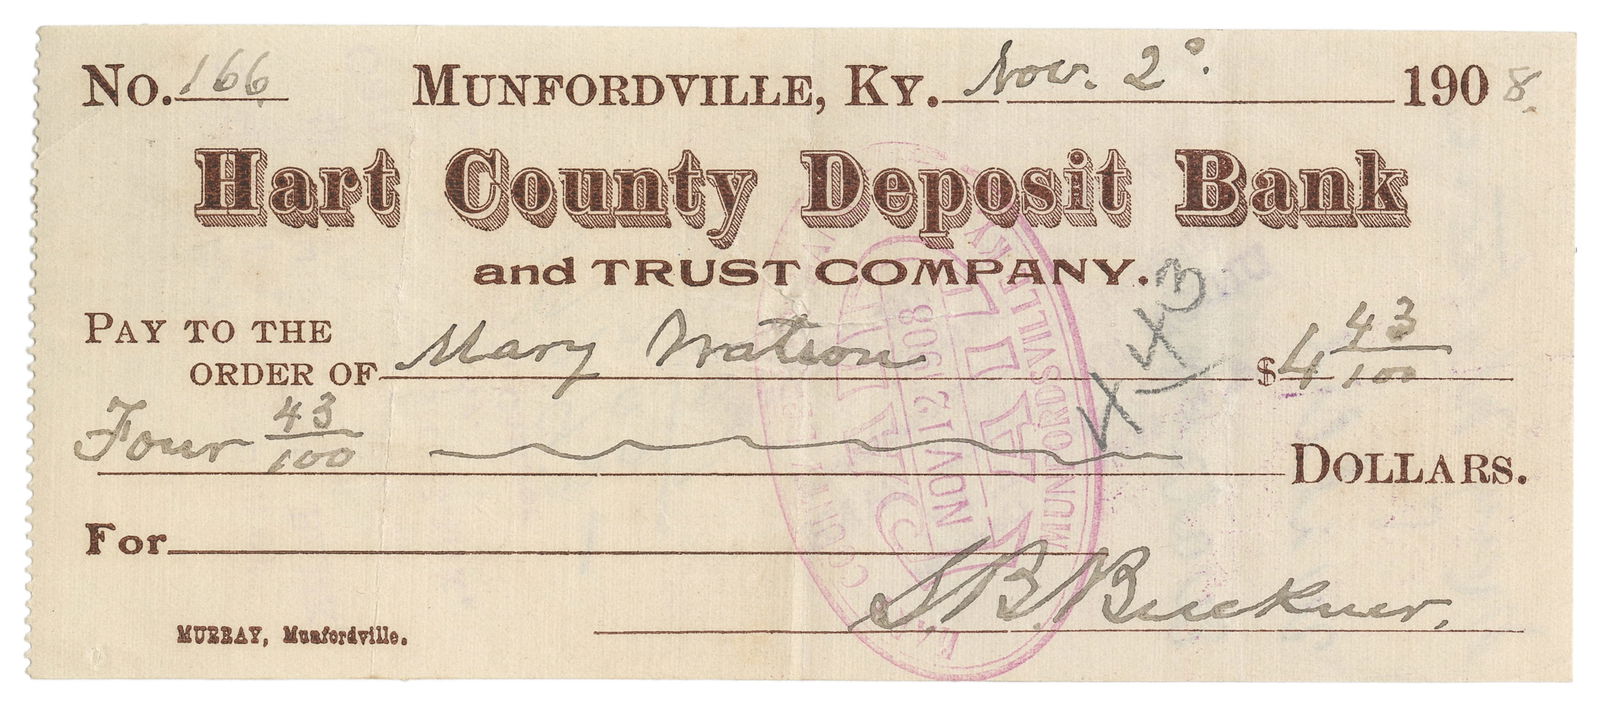 No. 166 Munfordville, Ky. Nov. 2° 1908.
Hart County Deposit Bank
and TRUST COMPANY.
Pay to the
order of Mary Watson $4 43/100
Four 43/100 Dollars.
For
S. B. Buckner.
MURRAY, Munfordville.
PAID
NOV 12 1908
MUNFORDSVILLE, KY.